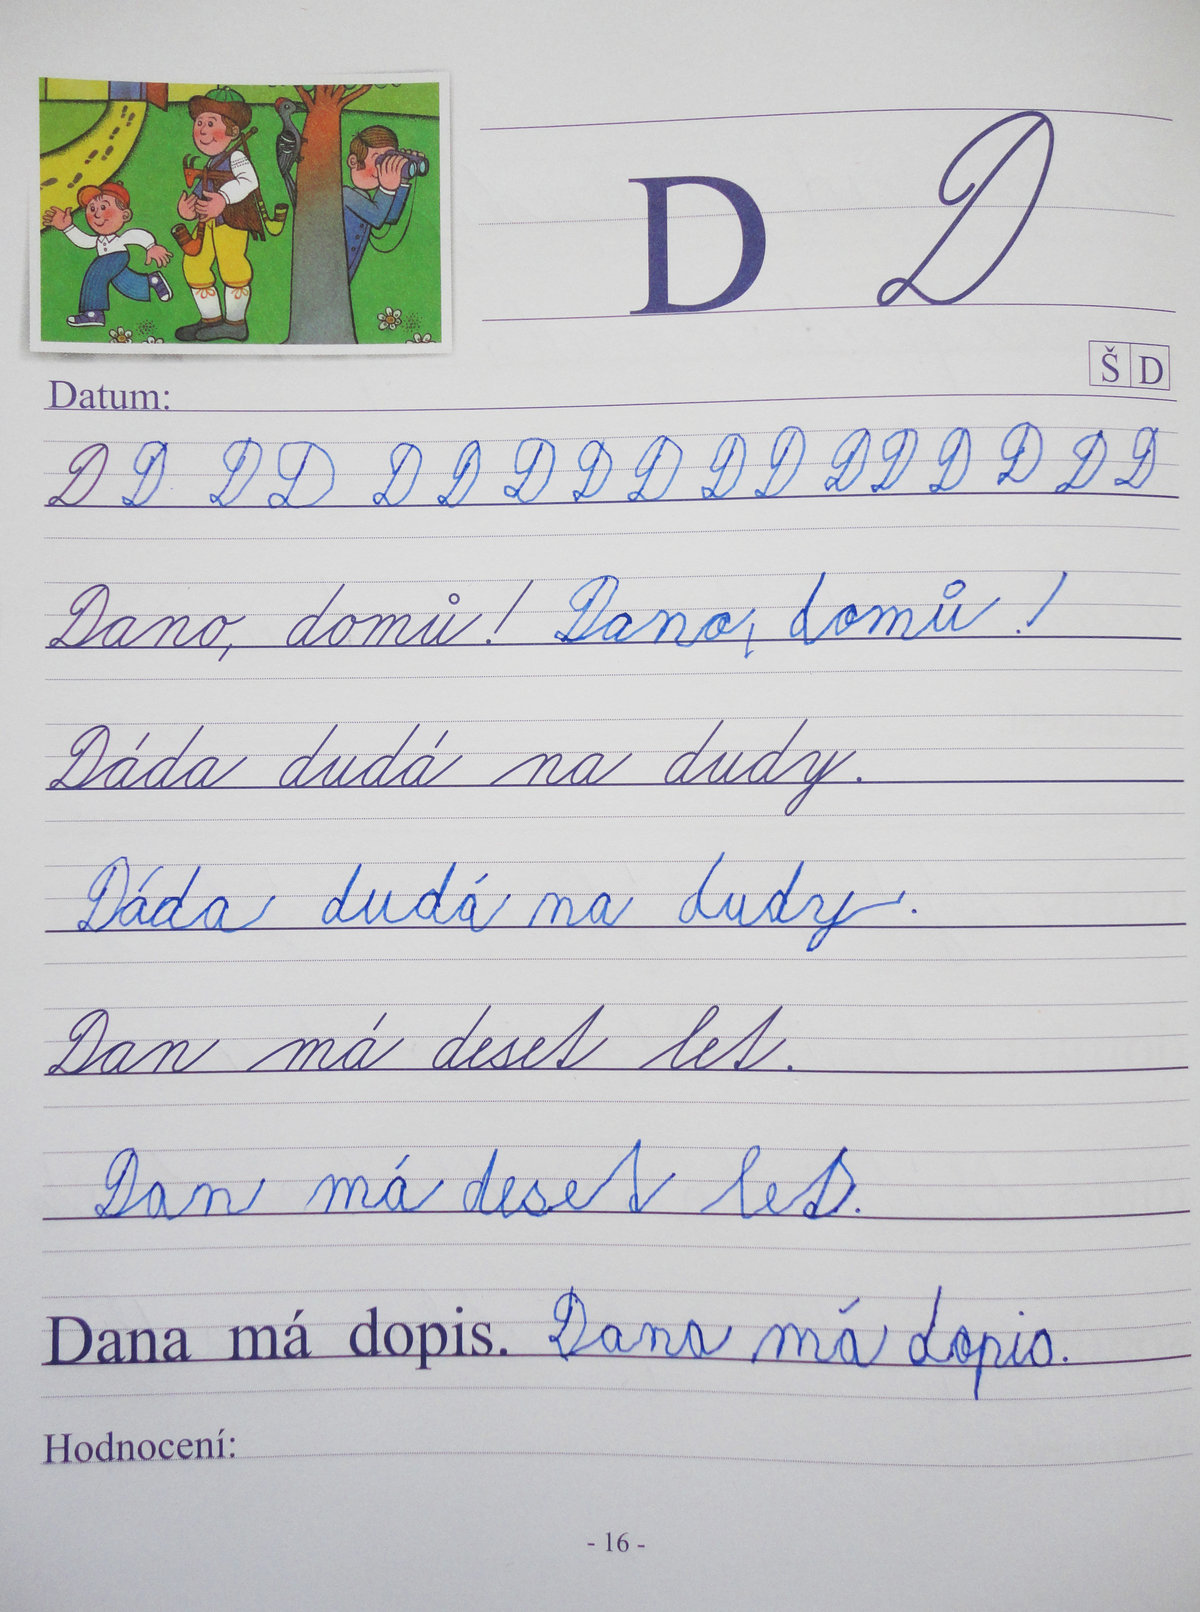 D D
Š D
Datum:
D D D D D D D D D D D D D D D D D
Dano, domů! Dano, domů!
Dáda dudá na dudy.
Dáda dudá na dudy.
Dan má deset let.
Dan má deset let.
Dana má dopis. Dana má dopis.
Hodnocení:
- 16 -